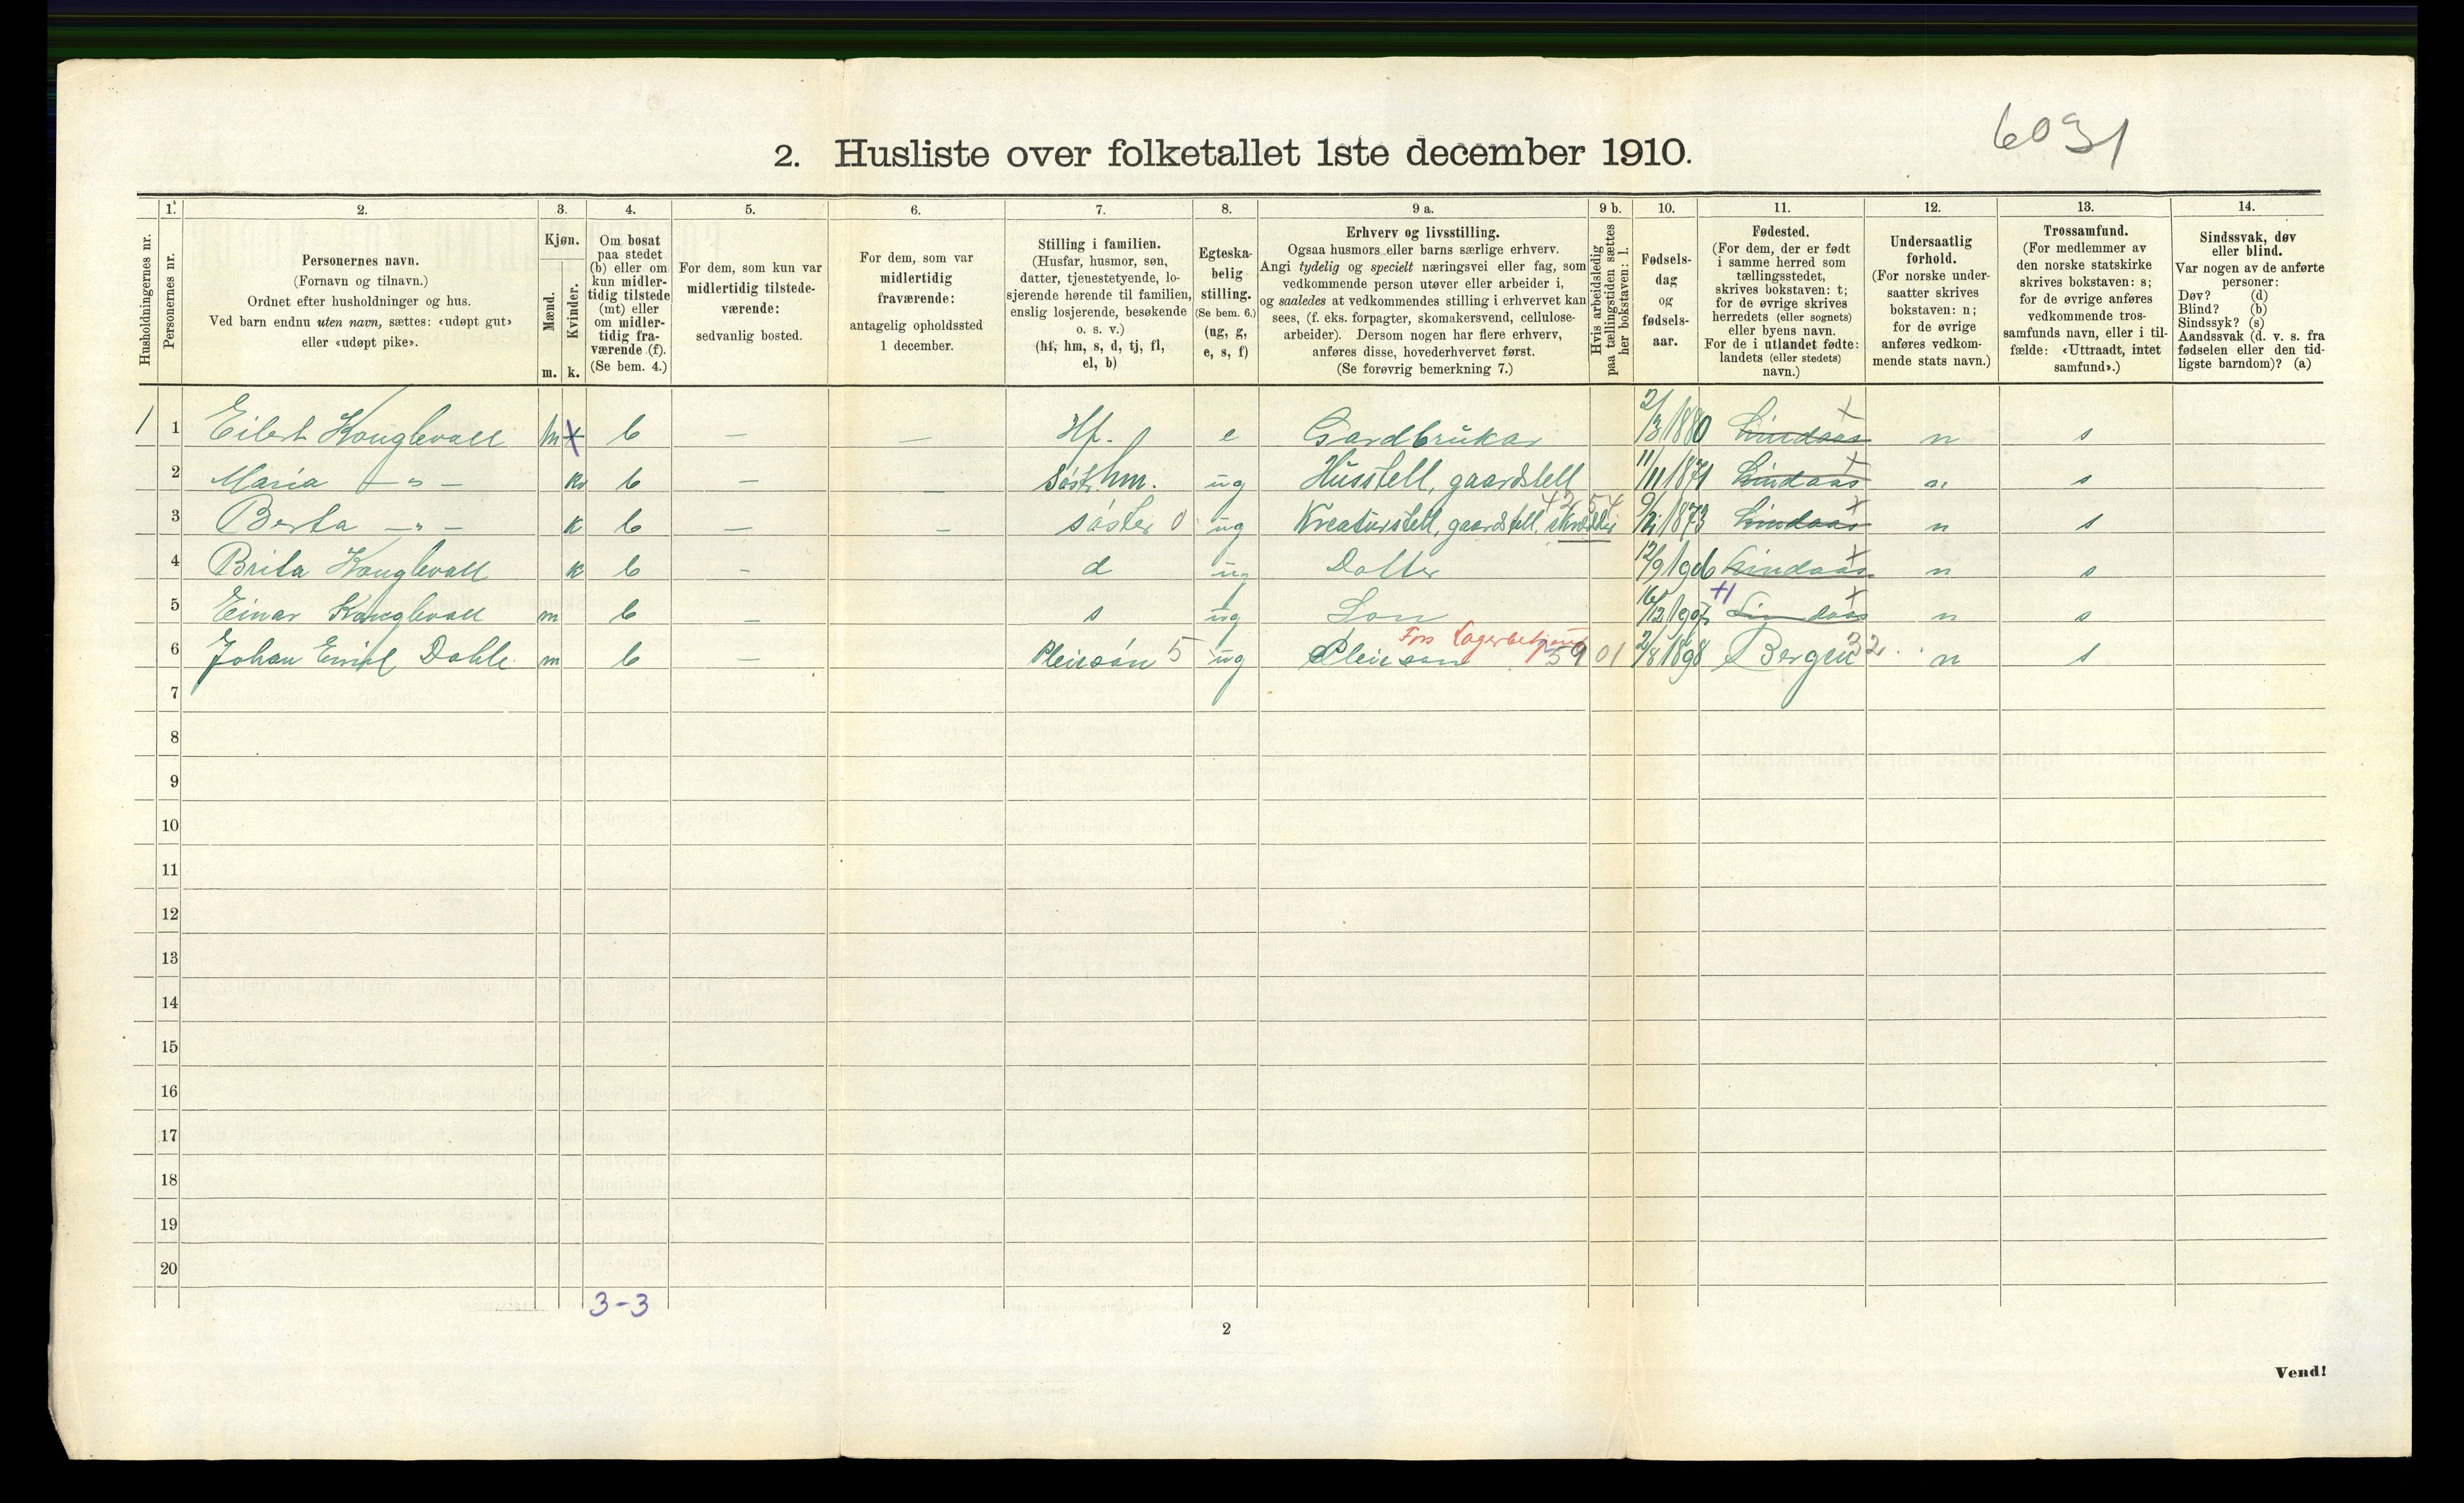 6031
2. Husliste over folketallet 1ste december 1910.
Husholdningernes nr.
1. Personernes nr.
2. Personernes navn.
(Fornavn og tilnavn.)
Ordnet efter husholdninger og hus.
Ved barn endnu uten navn, sættes: «udøpt gut»
eller «udøpt pike».
3. Kjøn.
Mænd. m.
Kvinder. k.
4. Om bosat
paa stedet
(b) eller om
kun midler-
tidig tilstede
(mt) eller
om midler-
tidig fra-
værende (f).
(Se bem. 4.)
5. For dem, som kun var
midlertidig tilstede-
værende:
sedvanlig bosted.
6. For dem, som var
midlertidig
fraværende:
antagelig opholdssted
1 december.
7. Stilling i familien.
(Husfar, husmor, søn,
datter, tjenestetyende, lo-
sjerende hørende til familien,
enslig losjerende, besøkende
o. s. v.)
(hf, hm, s, d, tj, fl,
el, b)
8. Egteska-
belig
stilling.
(Se bem. 6.)
(ug, g,
e, s, f)
9 a. Erhverv og livsstilling.
Ogsaa husmors eller barns særlige erhverv.
Angi tydelig og specielt næringsvei eller fag, som
vedkommende person utøver eller arbeider i,
og saaledes at vedkommendes stilling i erhvervet kan
sees, (f. eks. forpagter, skomakersvend, cellulose-
arbeider). Dersom nogen har flere erhverv,
anføres disse, hovederhvervet først.
(Se forøvrig bemerkning 7.)
9 b. Hvis arbeidsledig
paa tællingstiden sættes
her bokstaven: l.
10. Fødsels-
dag
og
fødsels-
aar.
11. Fødested.
(For dem, der er født
i samme herred som
tællingsstedet,
skrives bokstaven: t;
for de øvrige skrives
herredets (eller sognets)
eller byens navn.
For de i utlandet fødte:
landets (eller stedets)
navn.)
12. Undersaatlig
forhold.
(For norske under-
saatter skrives
bokstaven: n;
for de øvrige
anføres vedkom-
mende stats navn.)
13. Trossamfund.
(For medlemmer av
den norske statskirke
skrives bokstaven: s;
for de øvrige anføres
vedkommende tros-
samfunds navn, eller i til-
fælde: «Uttraadt, intet
samfund».)
14. Sindssvak, døv
eller blind.
Var nogen av de anførte
personer:
Døv? (d)
Blind? (b)
Sindssyk? (s)
Aandssvak (d. v. s. fra
fødselen eller den tid-
ligste barndom)? (a)
1 1 Eilert Konglevoll m x b — — Hf. e Gardbrukar 2/3 1880 Lindaas x n s
2 Maria —"— k b — — søster hm. ug Husstell, gaardstell 11/11 1871 Lindaas x n s
3 Berta —"— k b — — søster 0 ug Kreaturstell, gaardstell, 42 54 1873 Lindaas x n s
4 Brita Konglevoll k b - d ug Dotter 12/9 1906 Lindaas x n s
5 Einar Konglevoll m b — s ug Son 16/12 1907 +1 Lindaas x n s
6 Johan Emil Dahle m b — Pleiesøn 5 ug Pleieson Fors Lagerbetjent 59 01 2/8 1898 Bergen 32 n s
7
8
9
10
11
12
13
14
15
16
17
18
19
20
3-3
2
Vend!